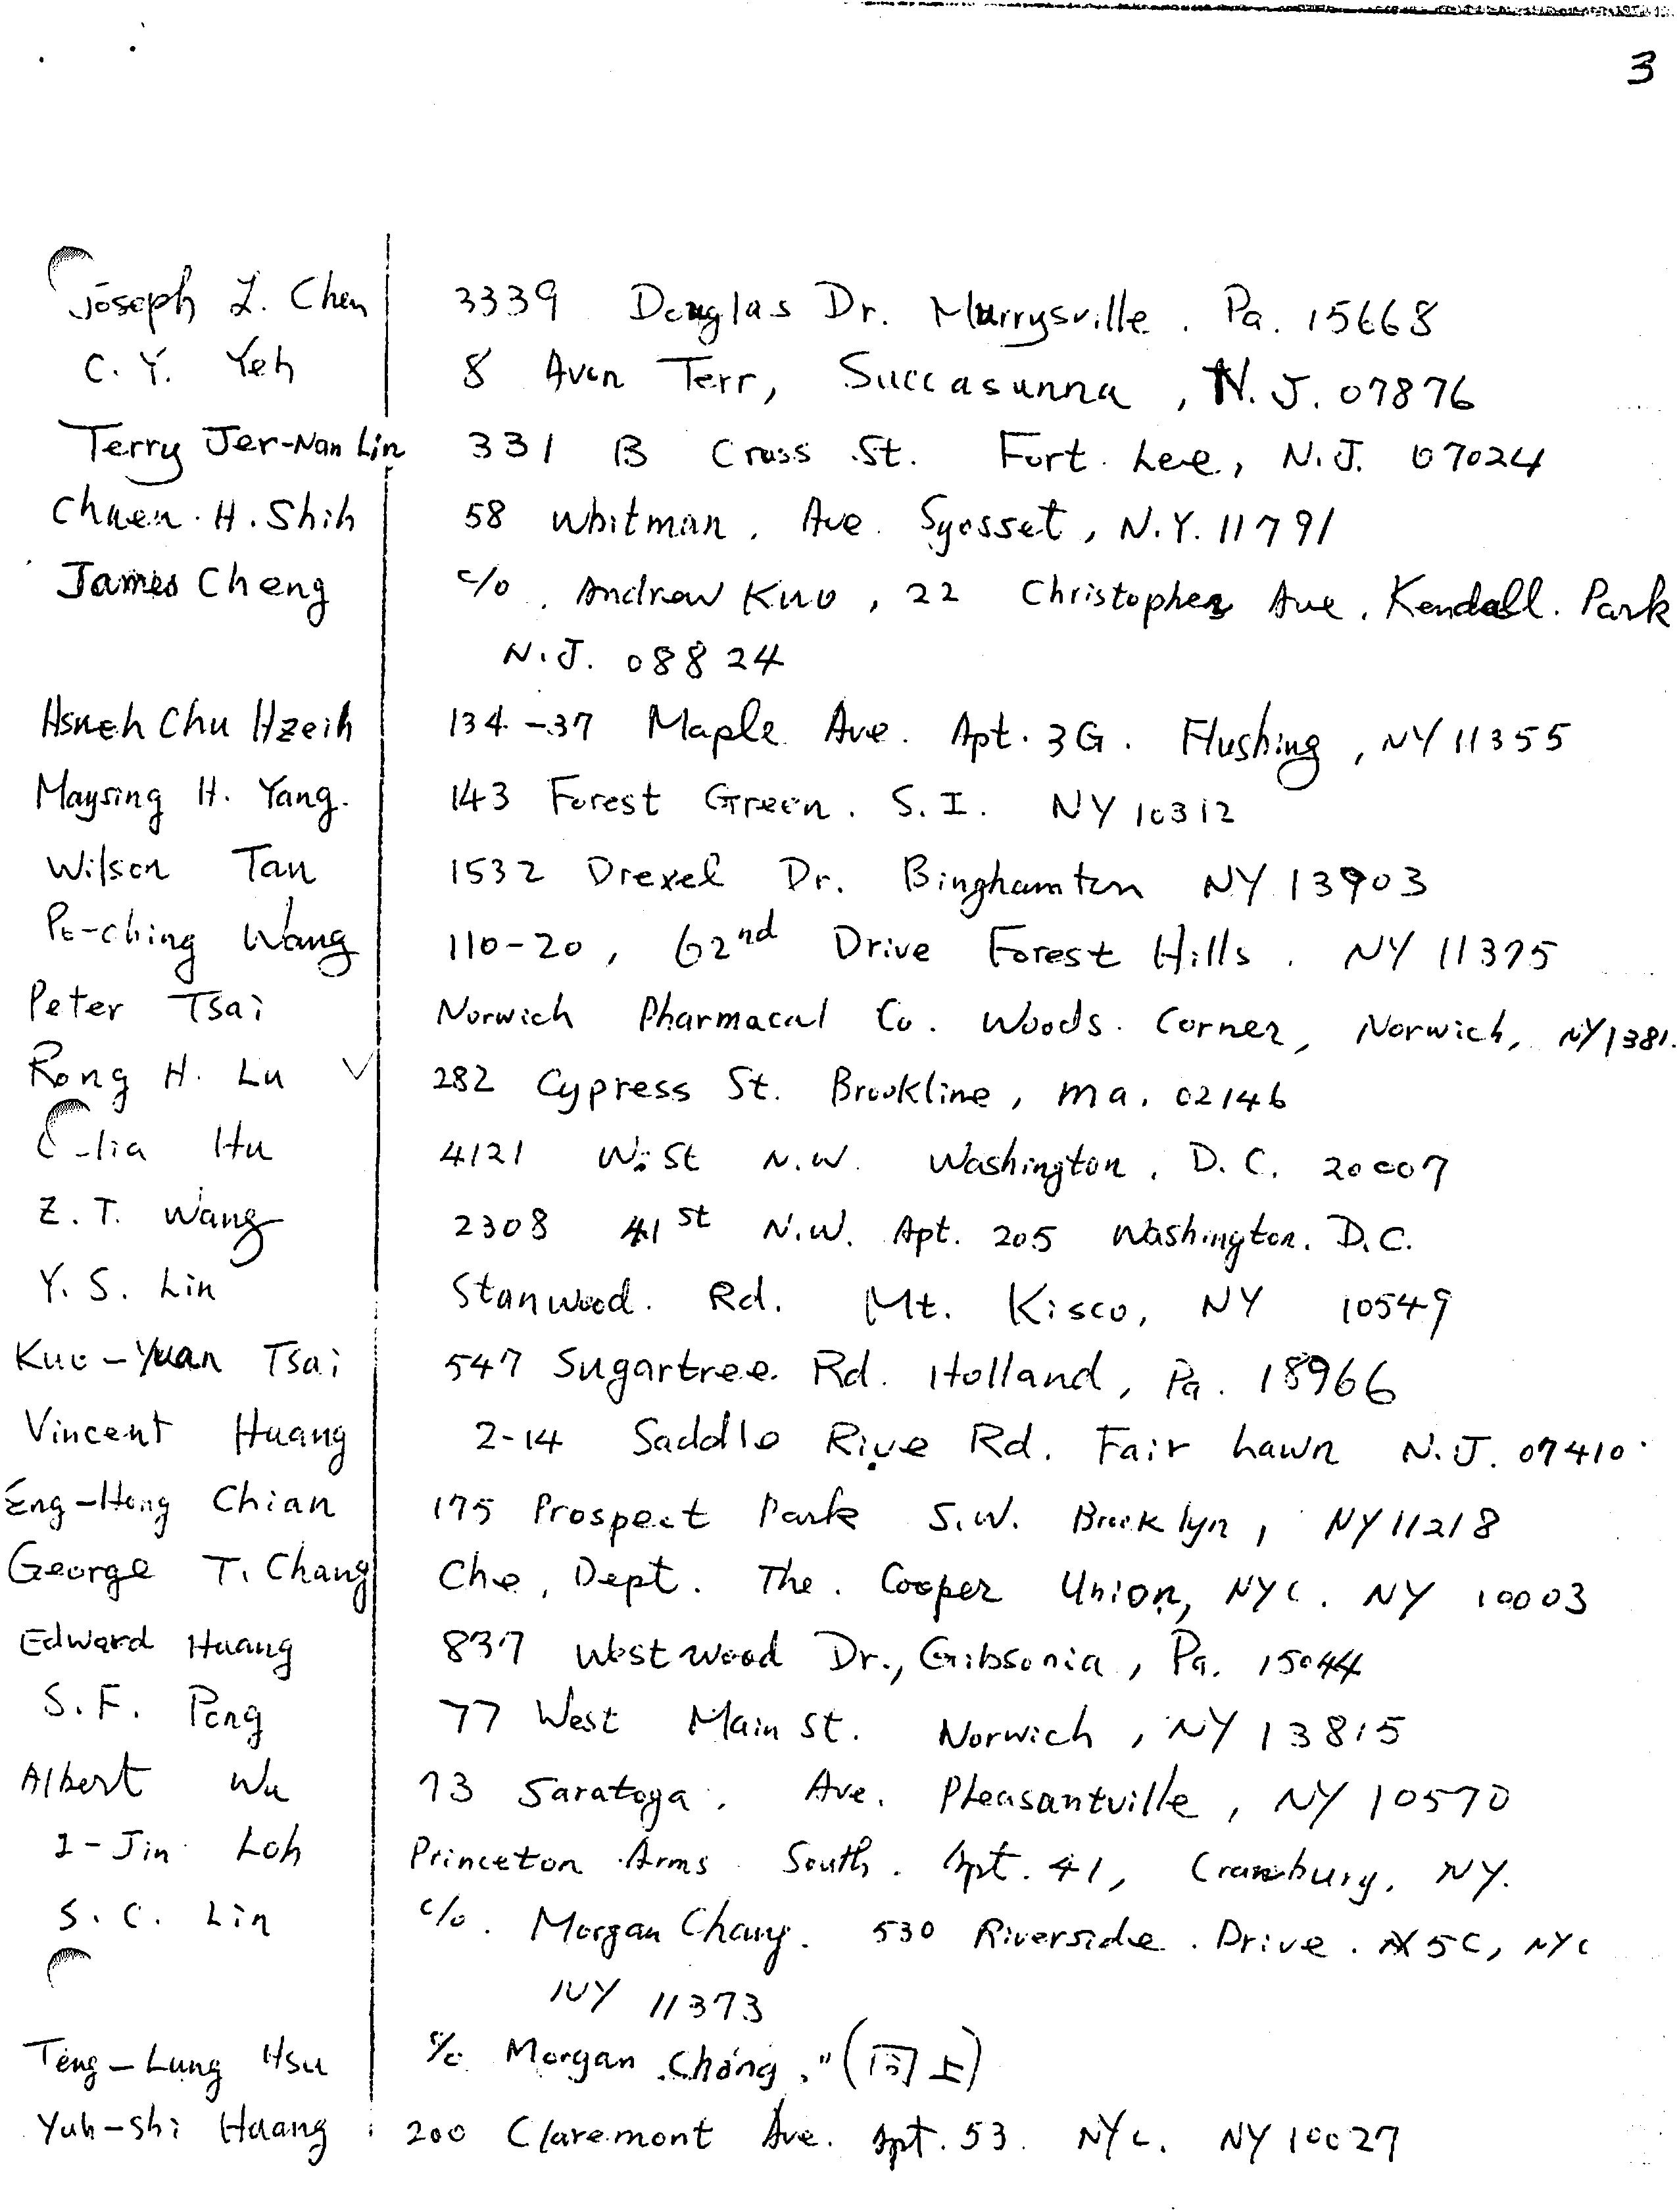 3
Joseph L. Chen 3339 Douglas Dr. Murrysville. Pa. 15668
C. Y. Yeh 8 Aven Terr, Succasunna, N.J. 07876
Terry Jer-Nan Lin 331 B Cross St. Fort Lee, N.J. 07024
Chuen. H. Shih 58 Whitman. Ave. Syosset, N.Y. 11791
James Cheng c/o. Andrew Kuo, 22 Christopher Ave. Kendall. Park
N.J. 08824
Hsueh Chu Hzeih 134-37 Maple Ave. Apt. 3G. Flushing, NY 11355
Maysing H. Yang. 143 Forest Green. S.I. NY 10312
Wilson Tan 1532 Drexel Dr. Binghamton NY 13903
Po-ching Wang 110-20, 62nd Drive Forest Hills. NY 11375
Peter Tsai Norwich Pharmacal Co. Woods. Corner, Norwich, NY 1381
Rong H. Lu ✓ 282 Cypress St. Brookline, Ma. 02146
Hu 4121 W. St N.W. Washington, D.C. 20007
Z. T. Wang 2308 41st N.W. Apt. 205 Washington. D.C.
Y. S. Lin Stanwood. Rd. Mt. Kisco, NY 10549
Kuo-Yuan Tsai 547 Sugartree Rd. Holland, Pa. 18966
Vincent Huang 2-14 Saddle Rive Rd. Fair Lawn N.J. 07410
Eng-Hong Chian 175 Prospect Park S.W. Brooklyn, NY 11218
George T. Chang Che. Dept. The. Cooper Union, NYC. NY 10003
Edward Huang 837 Westwood Dr., Gibsonia, Pa. 15044
S.F. Peng 77 West Main St. Norwich, NY 13815
Albert Wu 73 Saratoga. Ave. Pleasantville, NY 10570
I-Jin Loh Princeton Arms South. Apt. 41, Cranbury, NY.
S. C. Lin c/o. Morgan Chang. 530 Riverside. Drive. #5C, NYC
NY 11373
Teng-Lung Hsu c/o Morgan Chang. "(同上)
Yuh-shi Huang 200 Claremont Ave. Apt. 53. NYC. NY 10027